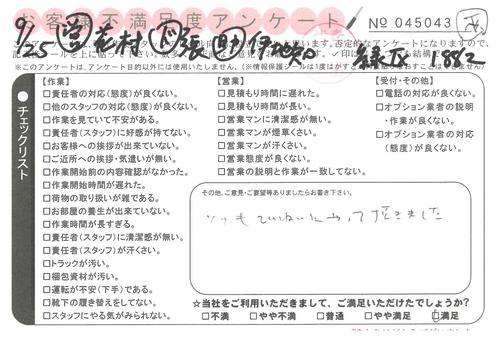 お客様不満足度アンケート
No 045043
9/25 営 花村
緑区 1882
※このアンケートは、アンケート目的以外には使用いたしません。
チェックリスト
【作業】
□責任者の対応(態度)が良くない。
□他のスタッフの対応(態度)が良くない。
□作業を見ていて不安がある。
□責任者(スタッフ)に好感が持てない。
□お客様への挨拶が出来ていない。
□ご近所への挨拶・気遣いが無い。
□作業開始前の内容確認がなかった。
□作業開始時間が遅れた。
□荷物の取り扱いが雑である。
□お部屋の養生が出来ていない。
□作業時間が長すぎる。
□責任者(スタッフ)に清潔感が無い。
□責任者(スタッフ)が汗くさい。
□トラックが汚い。
□梱包資材が汚い。
□運転が不安(下手)である。
□靴下の履き替えをしてない。
□スタッフにやる気がみられない。
【営業】
□見積もり時間に遅れた。
□見積もり時間が長い。
□営業マンに清潔感が無い。
□営業マンが煙草くさい。
□営業マンが汗くさい。
□営業態度が良くない。
□営業の説明と作業が一致してない。
【受付・その他】
□電話の対応が良くない。
□オプション業者の説明
・作業が良くない。
□オプション業者の対応
(態度)が良くない。
その他、ご意見・ご要望等ありましたらお書き下さい。
とてもていねいにやって頂きました
☆当社をご利用いただきまして、ご満足いただけたでしょうか?
□不満 □やや不満 □普通 □やや満足 □満足